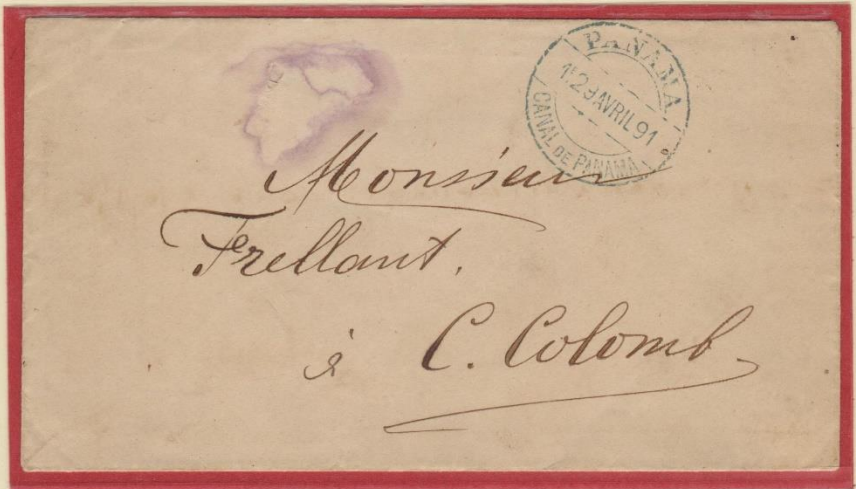 PANAMA
1E 29 AVRIL 91
CANAL DE PANAMA
Monsieur
Frellant.
à C. Colomb.